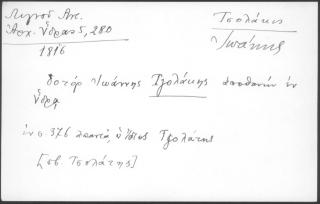 Λιγνοῦ Ἀντ.
Ἀρχ. Ὕδρας 5, 280
1816
Τσολάκης
Ἰωάννης
δοτόρ Ἰωάννης Τζολάκης ἀποθανών ἐν
Ὕδρᾳ
ἐν σ. 376 ὁ ἴδιος Τζολάτης
[σβ. Τσολάτης]